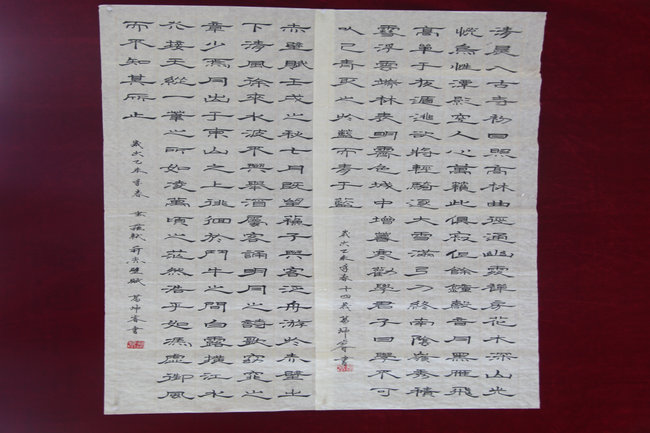 清晨入古寺初日照高林曲徑通幽處禪房花木深山光
悅鳥性潭影空人心萬籟此俱寂但餘鐘磬音月黑雁飛
高單于夜遁逃欲將輕騎逐大雪滿弓刀終南陰嶺秀積
雪浮雲端林表明霽色城中增暮寒勸學君子曰學不可
以已青取之於藍而青于藍
歲次乙未季春十四歲葛坤睿書
赤壁賦壬戌之秋七月既望蘇子與客泛舟游於赤壁之
下清風徐來水波不興舉酒屬客誦明月之詩歌窈窕之
章少焉月出于東山之上徘徊於斗牛之間白露橫江水
光接天縱一葦之所如凌萬頃之茫然浩乎如馮虛御風
而不知其所止
歲次乙未季春 宋蘇軾前赤壁賦 葛坤睿書